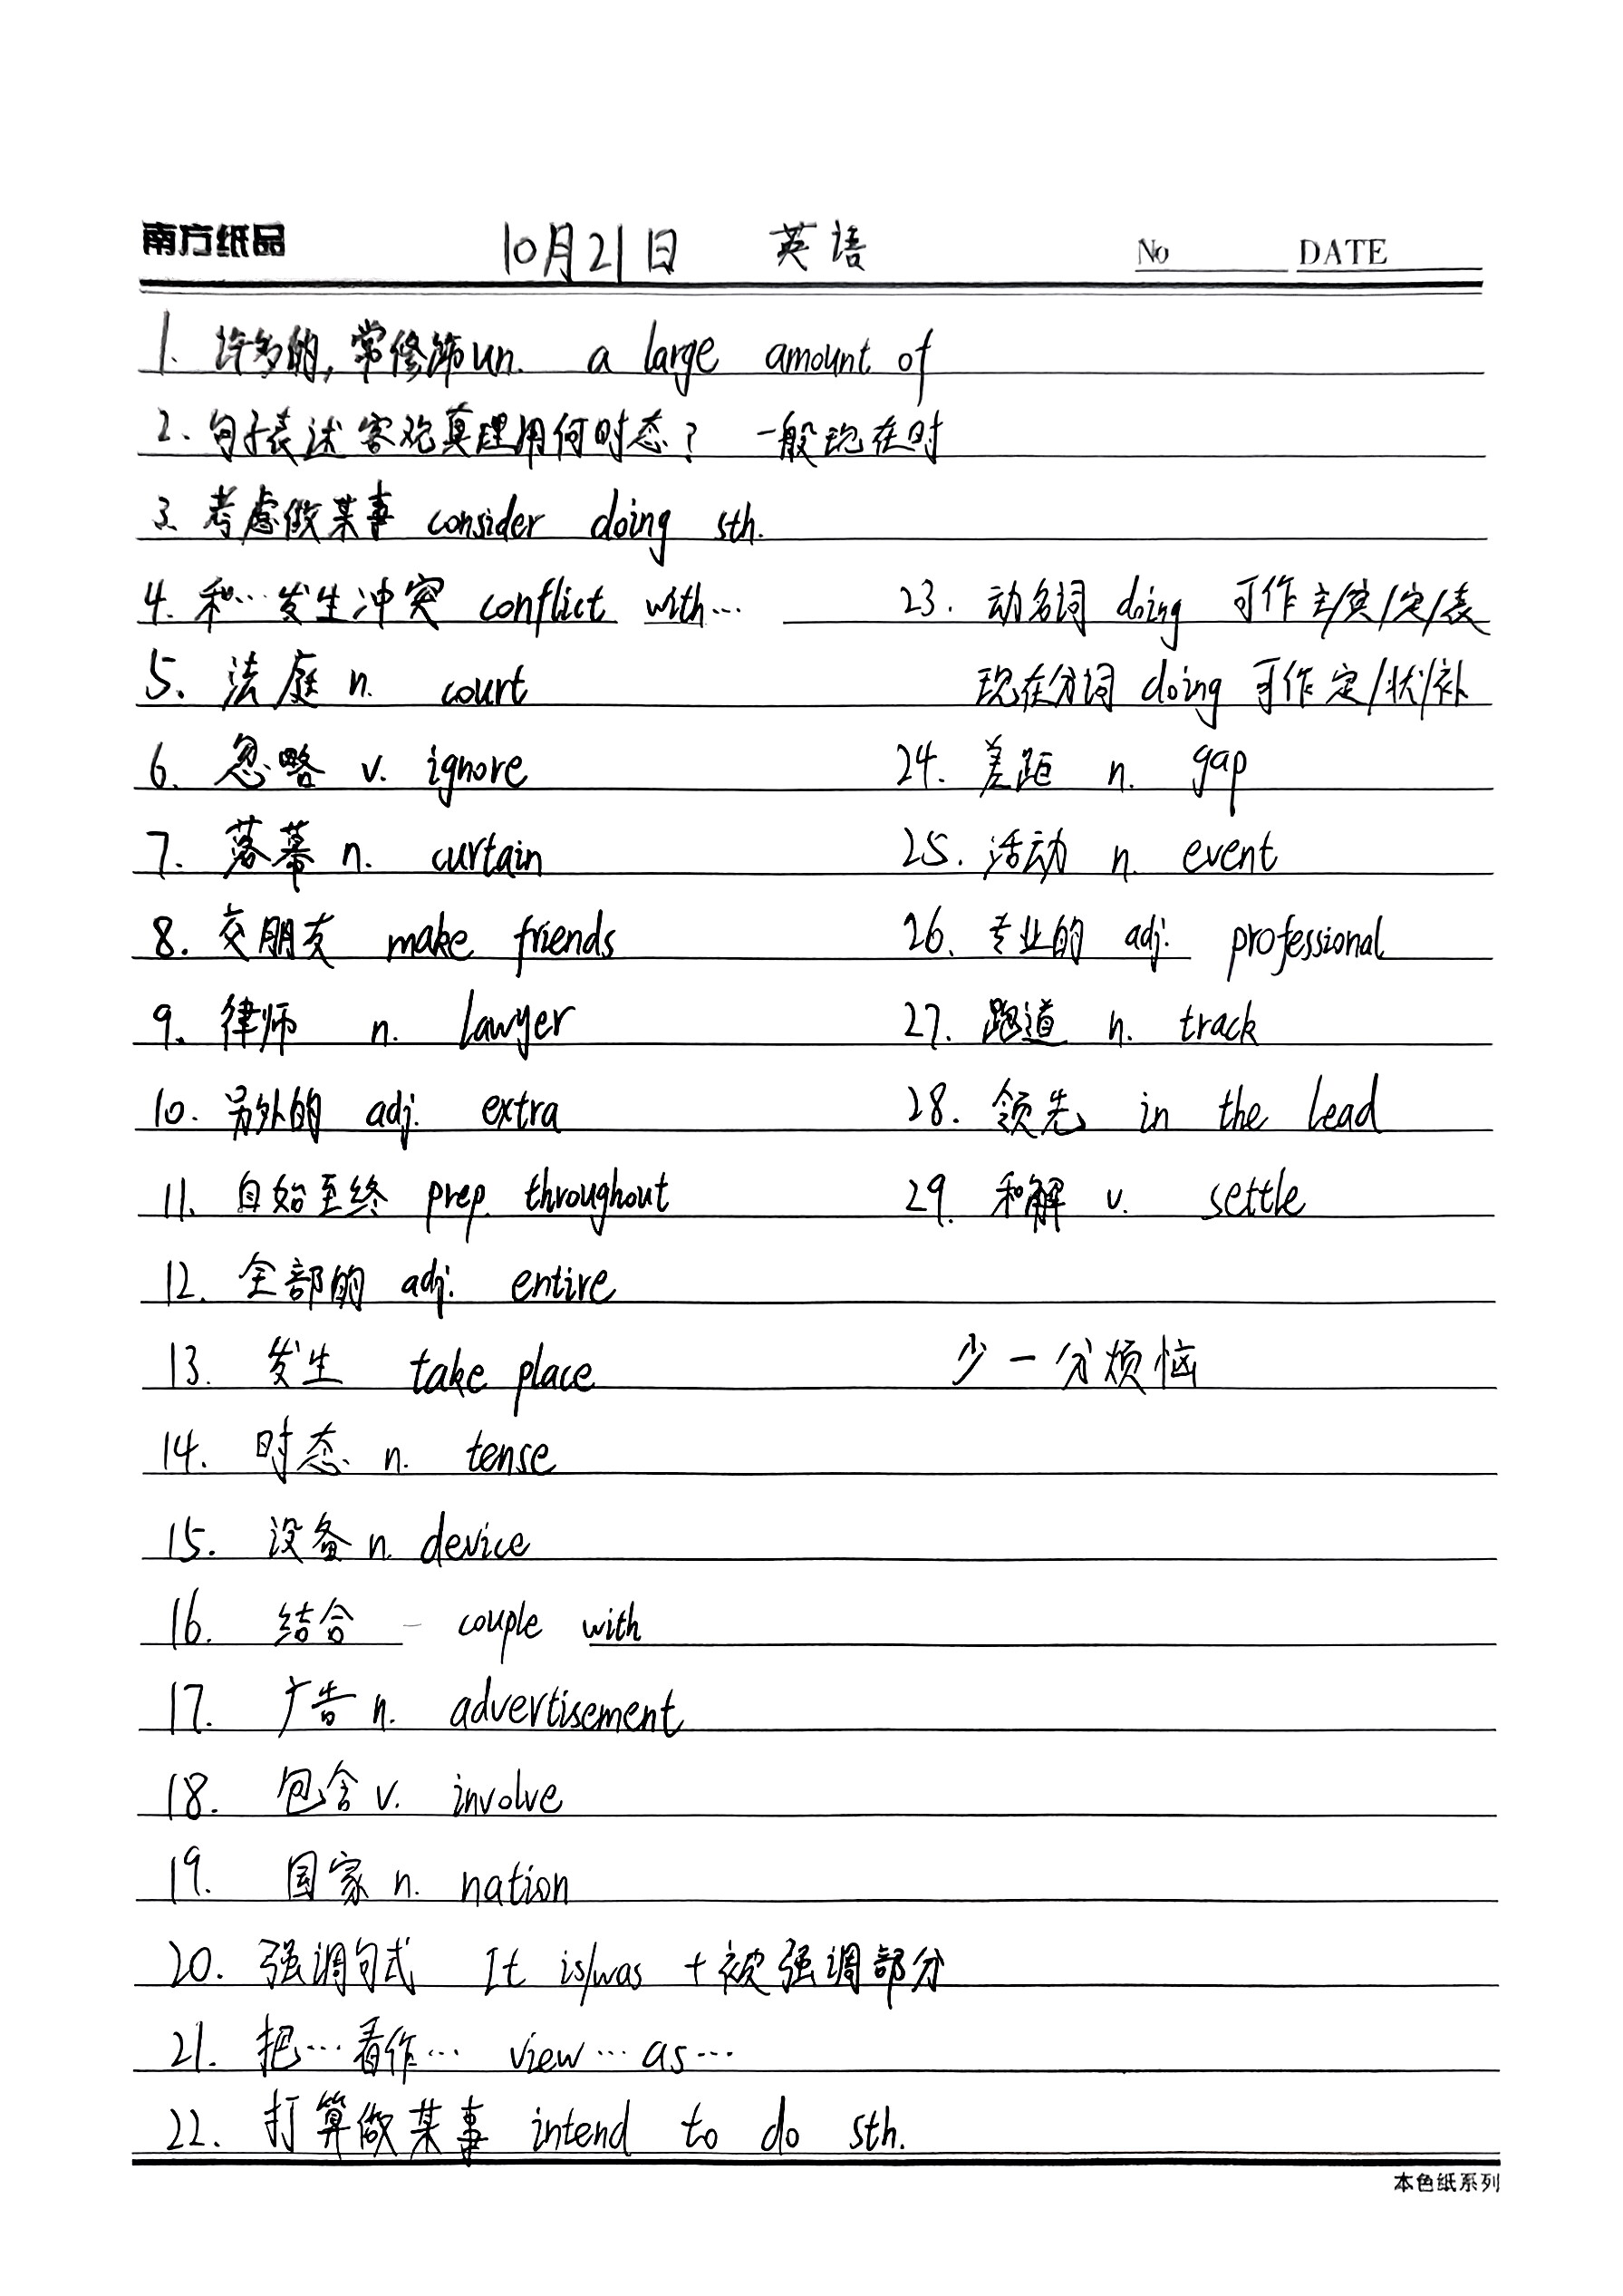 南方纸品 10月21日 英语 No DATE
1. 许多的,常修饰un. a large amount of
2. 句子表述客观真理用何时态? 一般现在时
3. 考虑做某事 consider doing sth.
4. 和…发生冲突 conflict with…
5. 法庭 n. court
6. 忽略 v. ignore
7. 落幕 n. curtain
8. 交朋友 make friends
9. 律师 n. lawyer
10. 另外的 adj. extra
11. 自始至终 prep. throughout
12. 全部的 adj. entire
13. 发生 take place
14. 时态 n. tense
15. 设备 n. device
16. 结合 couple with
17. 广告 n. advertisement
18. 包含 v. involve
19. 国家 n. nation
20. 强调句式 It is/was + 被强调部分
21. 把…看作… view…as…
22. 打算做某事 intend to do sth.
23. 动名词 doing 可作主/宾/定/表
现在分词 doing 可作定/状/补
24. 差距 n. gap
25. 活动 n. event
26. 专业的 adj. professional
27. 跑道 n. track
28. 领先 in the lead
29. 和解 v. settle
少一分烦恼
本色纸系列